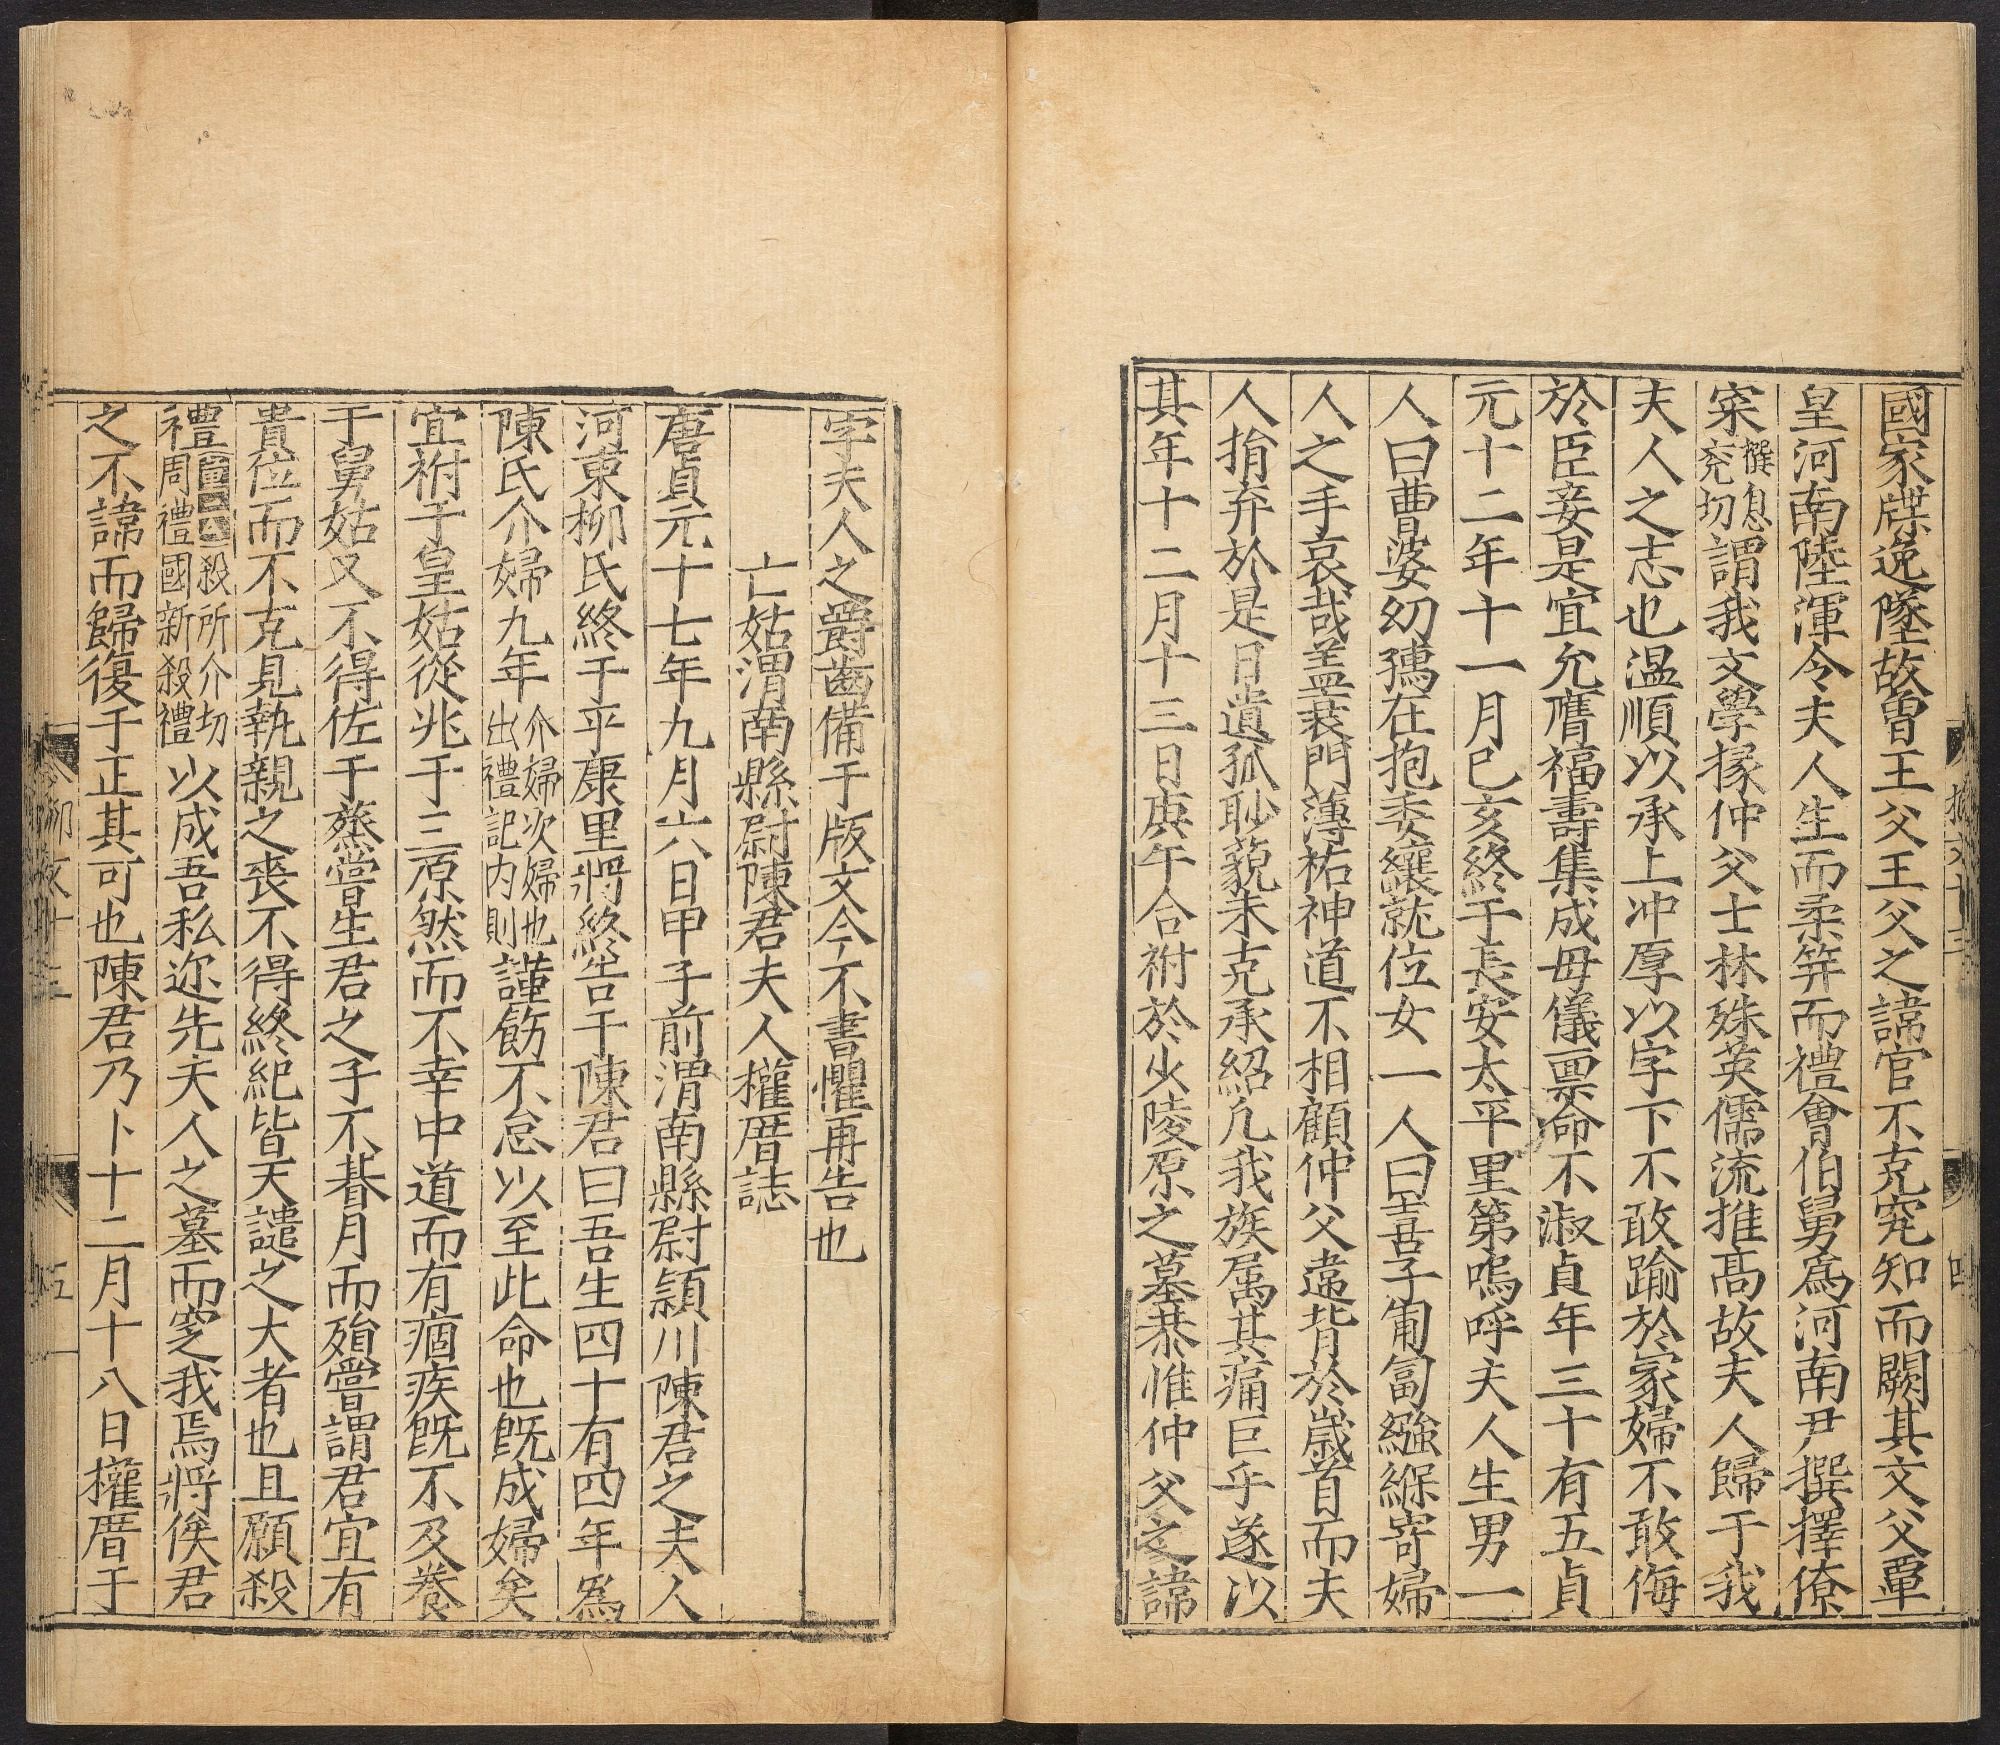 國家牒逸墜故曾王父王父之諱官不克究知而闕其文父覃
皇河南陸渾令夫人生而柔筓而禮會伯舅爲河南尹撰擇僚
寀撰息兖切謂我文學掾仲父士林殊英儒流推髙故夫人歸于我
夫人之志也温順以承上冲厚以字下不敢踰於冢婦不敢侮
於臣妾是宜允膺福壽集成母儀禀命不淑貞年三十有五貞
元十二年十一月已亥終于長安太平里第嗚呼夫人生男一
人曰曹婆㓜孺在抱委纕就位女一人曰喜子匍匐繈緥寄婦
人之手哀哉盖衰門薄祐神道不相顧仲父違背於歲首而夫
人捐弃於是日遺孤眇藐未克承紹凡我族属其痛巨乎遂以
其年十二月十三日庚午合祔於少陵原之墓恭惟仲父之諱
字夫人之爵齒備于版文今不書懼再告也
亡姑渭南縣尉陳君夫人權厝誌
唐貞元十七年九月六日甲子前渭南縣尉潁川陳君之夫人
河東柳氏終于平康里將終告于陳君曰吾生四十有四年爲
陳氏介婦九年介婦次婦也出禮記内則謹飭不怠以至此命也旣成婦矣
宜祔于皇姑從兆于三原然而不幸中道而有痼疾旣不及養
于舅姑又不得佐于蒸嘗生君之子不朞月而殞嘗謂君宜有
貴位而不克見執親之喪不得終紀皆天譴之大者也且願殺
禮殺所介切周禮國新殺禮以成吾私迩先夫人之墓而窆我焉將俟君
之不諱而歸復于正其可也陳君乃卜十二月十八日權厝于